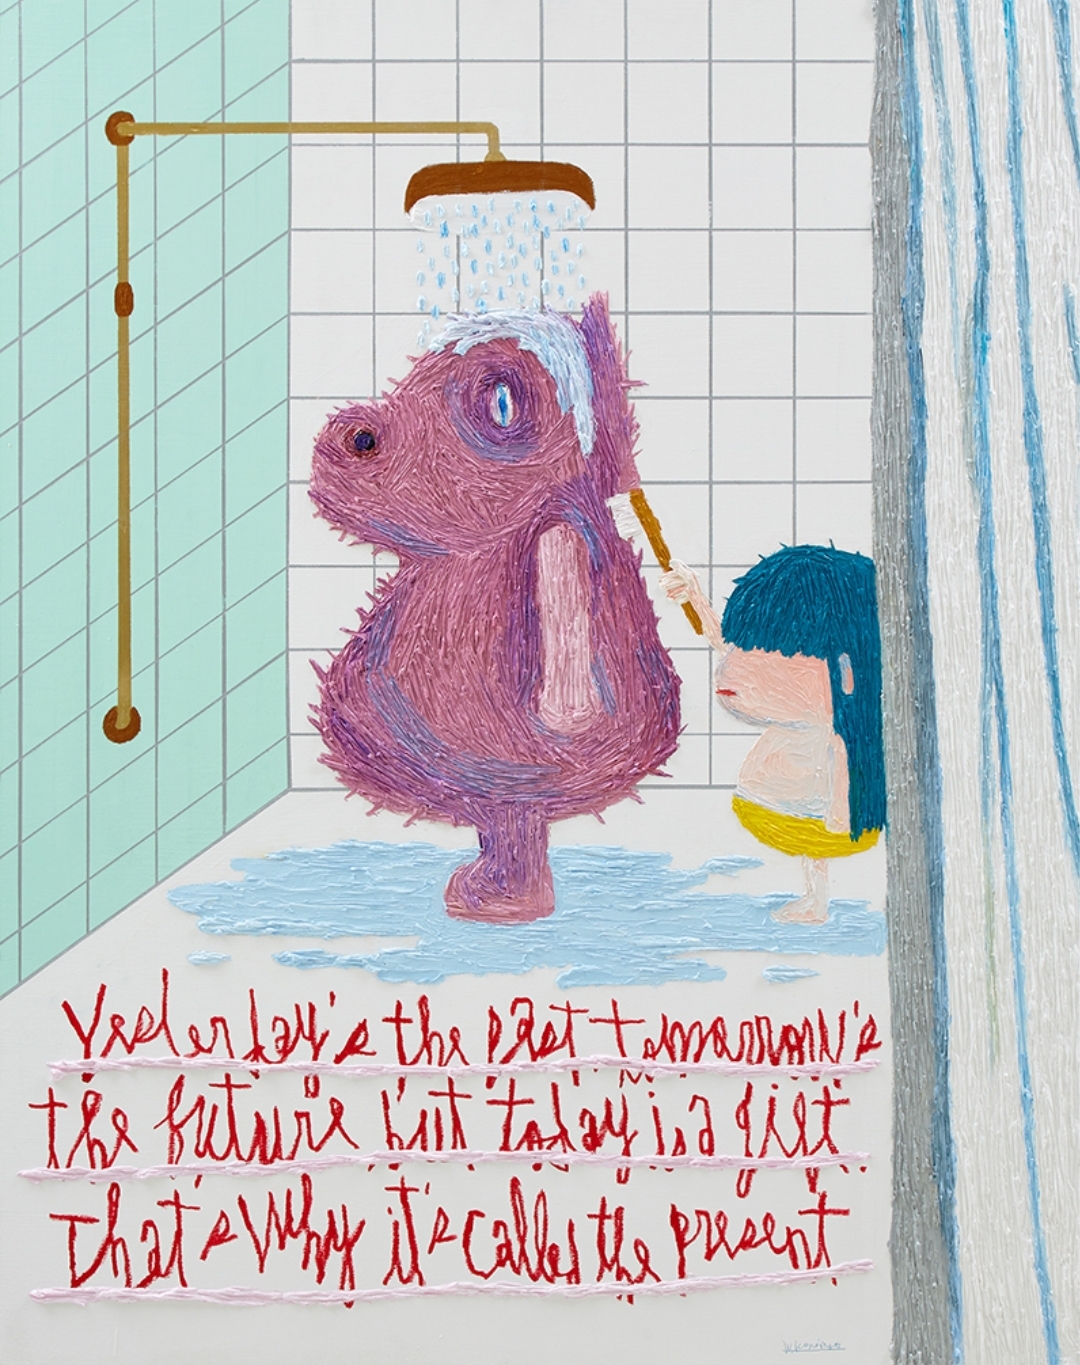 Yesterday's the past tomorrow's
the future but today is a gift
That's Why it's called the present